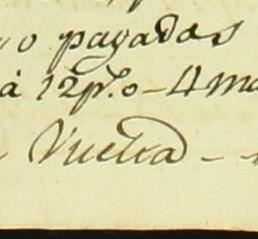 o pagadas
á 12 p.o - 4 ma
Vuelta -